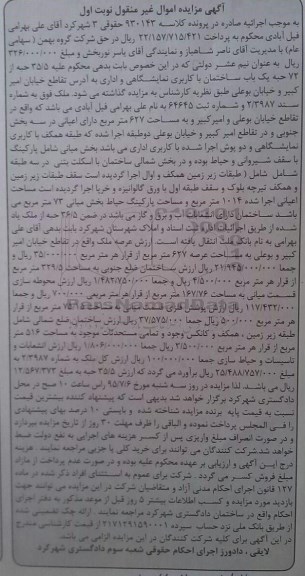 آگهی مزایده اموال غیر منقول نوبت اول
به موجب اجرائیه صادره در پرونده کلاسه ۹۳۰۱۴۳ حقوقی ۳ شهرکرد آقای علی بهرامی
فیل آبادی محکوم به پرداخت ۲۲/۱۵۷/۷۱۵/۴۲۱ ریال در حق شرکت گروه بهمن (سهامی
عام) با مدیریت آقای ناصر شاهباز و نمایندگی آقای یاسر نوربخش و مبلغ ۳۲۶/۰۰۰/۰۰۰
ریال به عنوان نیم عشر دولتی که در این خصوص بابت بدهی محکوم علیه ۳۵/۵ حبه از
۷۲ حبه یک باب ساختمان با کاربری نمایشگاهی و اداری به آدرس تقاطع خیابان امیر
کبیر و خیابان بوعلی طبق نظریه کارشناس به مزایده گذاشته می شود. ملک فوق به شماره
سند ۲/۳۹۸۷ و شماره ثبت ۶۴۶۴۵ به نام علی بهرامی فیل آبادی می باشد که واقع در
تقاطع خیابان بوعلی و امیرکبیر و به مساحت ۶۲۷ متر مربع دارای اعیانی در سه بخش
جنوبی و در تقاطع امیر کبیر و خیابان بوعلی دوطبقه اجرا شده که طبقه همکف با کاربری
نمایشگاهی و دو پوش اجرا شده با کاربری اداری می باشد بخش میانی شامل پارکینگ
با سقف شیروانی و حیاط بوده و در بخش شمالی ساختمان با اسکلت بتنی در سه طبقه
شامل (طبقات زیر زمین همکف و اول) اجرا گردیده است سقف طبقات زیر زمین
و همکف تیرچه بلوک و سقف طبقه اول با ورق گالوانیزه و خرپا اجرا گردیده است مساحت
اعیانی اجرا شده ۱۰۱۴ متر مربع و مساحت پارکینگ حیاط بخش میانی ۷۳ متر مربع می
باشد ساختمان دارای انشعابات آب برق و گاز می باشد در ضمن ۳۶/۵ حبه از ملک یاد
شده از طریق اجرائیات اداره ثبت اسناد و املاک شهرستان شهرکرد بابت بدهی آقای علی
بهرامی به نام بانک ملت انتقال یافته است. ارزش عرصه ملک واقع در تقاطع خیابان امیر
کبیر و بوعلی به مساحت عرصه ۶۲۷ متر مربع از قرار هر متر مربع ۳۵/۰۰۰/۰۰۰ ریال و
جمعا ۲۱/۹۴۵/۰۰۰/۰۰۰ ریال ارزش ساختمان ضلع جنوبی به مساحت ۳۲۹/۵ متر مربع
از قرار هر متر مربع ۴/۵۰۰/۰۰۰ ریال و جمعا ۱/۴۸۲/۷۵۰/۰۰۰ ریال ارزش محوطه سازی
قسمت میانی به مساحت ۱۶۷/۷۶ متر مربع از قرار هر متر مربع ۷۰۰/۰۰۰ ریال و جمعا
۱۱۷/۴۳۲/۰۰۰ ریال ارزش
طبقه زیر زمین، همکف و
مربع از قرار هر متر مربع ۳/۵۰۰/۰۰۰ ریال و جمعا ۱/۸۰۶/۰۰۰/۰۰۰ ریال ارزش انشعابات و
تاسیسات و حیاط سازی جمعا ۱۰۰/۰۰۰/۰۰۰ ریال ارزش کل ملک به شماره ۲/۳۹۸۷ به
مبلغ ۲۵/۴۸۸/۷۵۷/۰۰۰ ریال برآورد می گردد که ارزش ۳۵/۵ حبه به مبلغ ۱۲/۵۶۷/۳۷۳
ریال می باشد. لذا مزایده در روز سه شنبه مورخ ۹۵/۷/۶ راس ساعت ۱۰ صبح در محل
دادگستری شهرکرد برگزار خواهد شد بدیهی است که پیشنهاد کننده بیشترین قیمت
نسبت به قیمت پایه برنده مزایده شناخته شده و بایستی ۱۰ درصد بهای پیشنهادی
را فی المجلس پرداخت نموده و الباقی را ظرف مهلت ۳۰ روز از تاریخ مزایده بپردازد
و در صورت انصراف مبلغ واریزی پس از کسر هزینه های اجرایی به نفع دولت ضبط
خواهد شد شرکت کنندگان می توانند برای خرید کلی یا جزیی مراجعه نمایند. هزینه
درج این آگهی و ارزیابی بر عهده محکوم علیه بوده و در صورت عدم پرداخت از مازاد
مبلغ فروش کسر می گردد
۱۲۷ قانون اجرای احکام مدنی آزاد و متقاضیان شرکت در این مزایده می توانند جهت
بازدید مورد مزایده و کسب اطلاعات بیشتر ۵ روز قبل از موعد مذکور به دفتر اجرای
احکام واقع در ساختمان دادگستری شهرکرد مراجعه نمایند.
از طریق بانک ملی نزد حساب سپرده ۲۱۷۱۲۹۱۵۹۰۰۰۱
در این آگهی برای کلیه شرکت کنندگان در این مزایده الزامی می باشد.
لایقی، دادورز اجرای احکام حقوقی شعبه سوم دادگستری شهرکرد